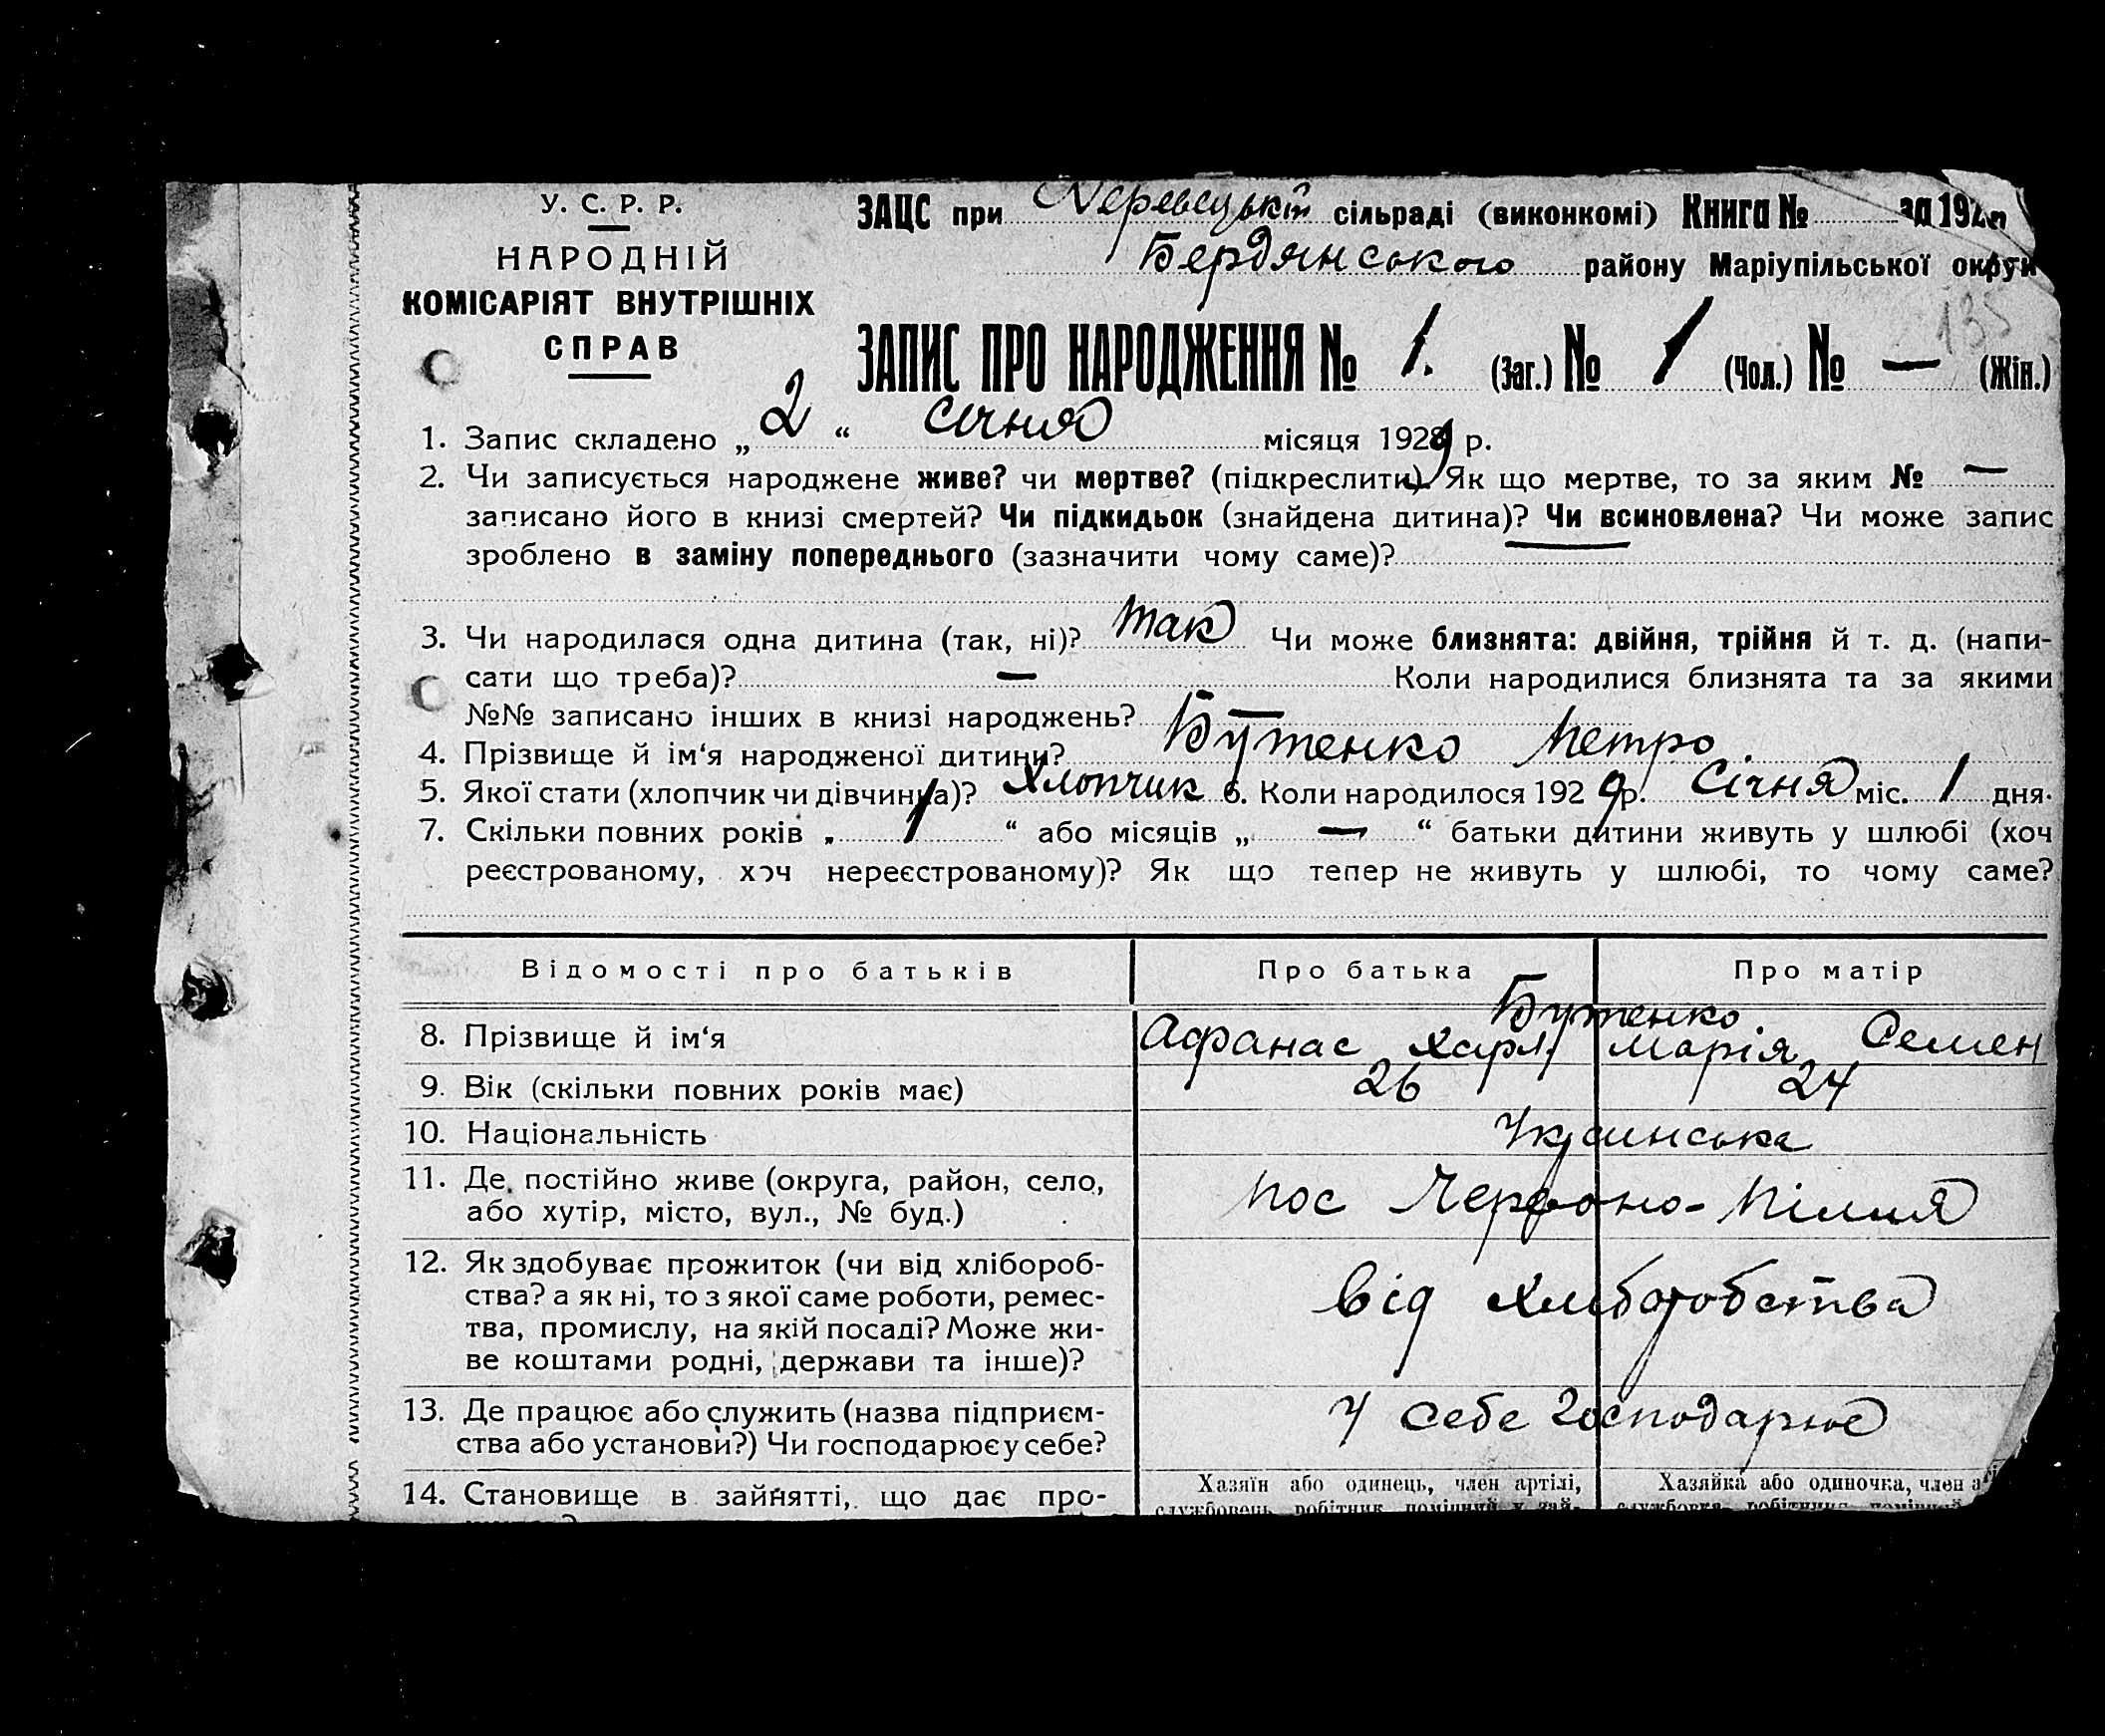 У. С. Р. Р.
НАРОДНІЙ
КОМІСАРІЯТ ВНУТРІШНІХ
СПРАВ
ЗАЦС при сільраді (виконкомі) Книга № за 192
Бердянського району Маріупільської округи
135
ЗАПИС ПРО НАРОДЖЕННЯ № 1. (Заг.) № 1 (Чол.) № — (Жін.)
1. Запис складено „ 2 “ січня місяця 1929 р.
2. Чи записується народжене живе? чи мертве? (підкреслити). Як що мертве, то за яким № —
записано його в книзі смертей? Чи підкидьок (знайдена дитина)? Чи всиновлена? Чи може запис
зроблено в заміну попереднього (зазначити чому саме)?
3. Чи народилася одна дитина (так, ні)? так Чи може близнята: двійня, трійня й т. д. (напи-
сати що треба)? — Коли народилися близнята та за якими
№№ записано інших в книзі народжень? —
4. Прізвище й ім‘я народженої дитини? Бутенко Петро.
5. Якої стати (хлопчик чи дівчинка)? Хлопчик 6. Коли народилося 192 9 р. Січня міс. 1 дня.
7. Скільки повних років „ 1 “ або місяців „ — “ батьки дитини живуть у шлюбі (хоч
реєстрованому, хоч нереєстрованому)? Як що тепер не живуть у шлюбі, то чому саме?
Відомості про батьків Про батька Про матір
Бутенко.
8. Прізвище й ім‘я Афанас Харл. Марія Семен
9. Вік (скільки повних років має) 26 24
10. Національність
11. Де постійно живе (округа, район, село,
або хутір, місто, вул., № буд.) пос Червоно-Пілля
12. Як здобуває прожиток (чи від хлібороб-
ства? а як ні, то з якої саме роботи, ремес-
тва, промислу, на якій посаді? Може жи-
ве коштами родні, держави та інше)? від хліборобства
13. Де працює або служить (назва підприєм-
ства або установи?) Чи господарює у себе? У себе господарює
14. Становище в зайнятті, що дає про-
Хазяїн або одинець, член артілі,
службовець, робітник, помішний у зай-
Хазяйка або одиночка, член
службовка, робітниця